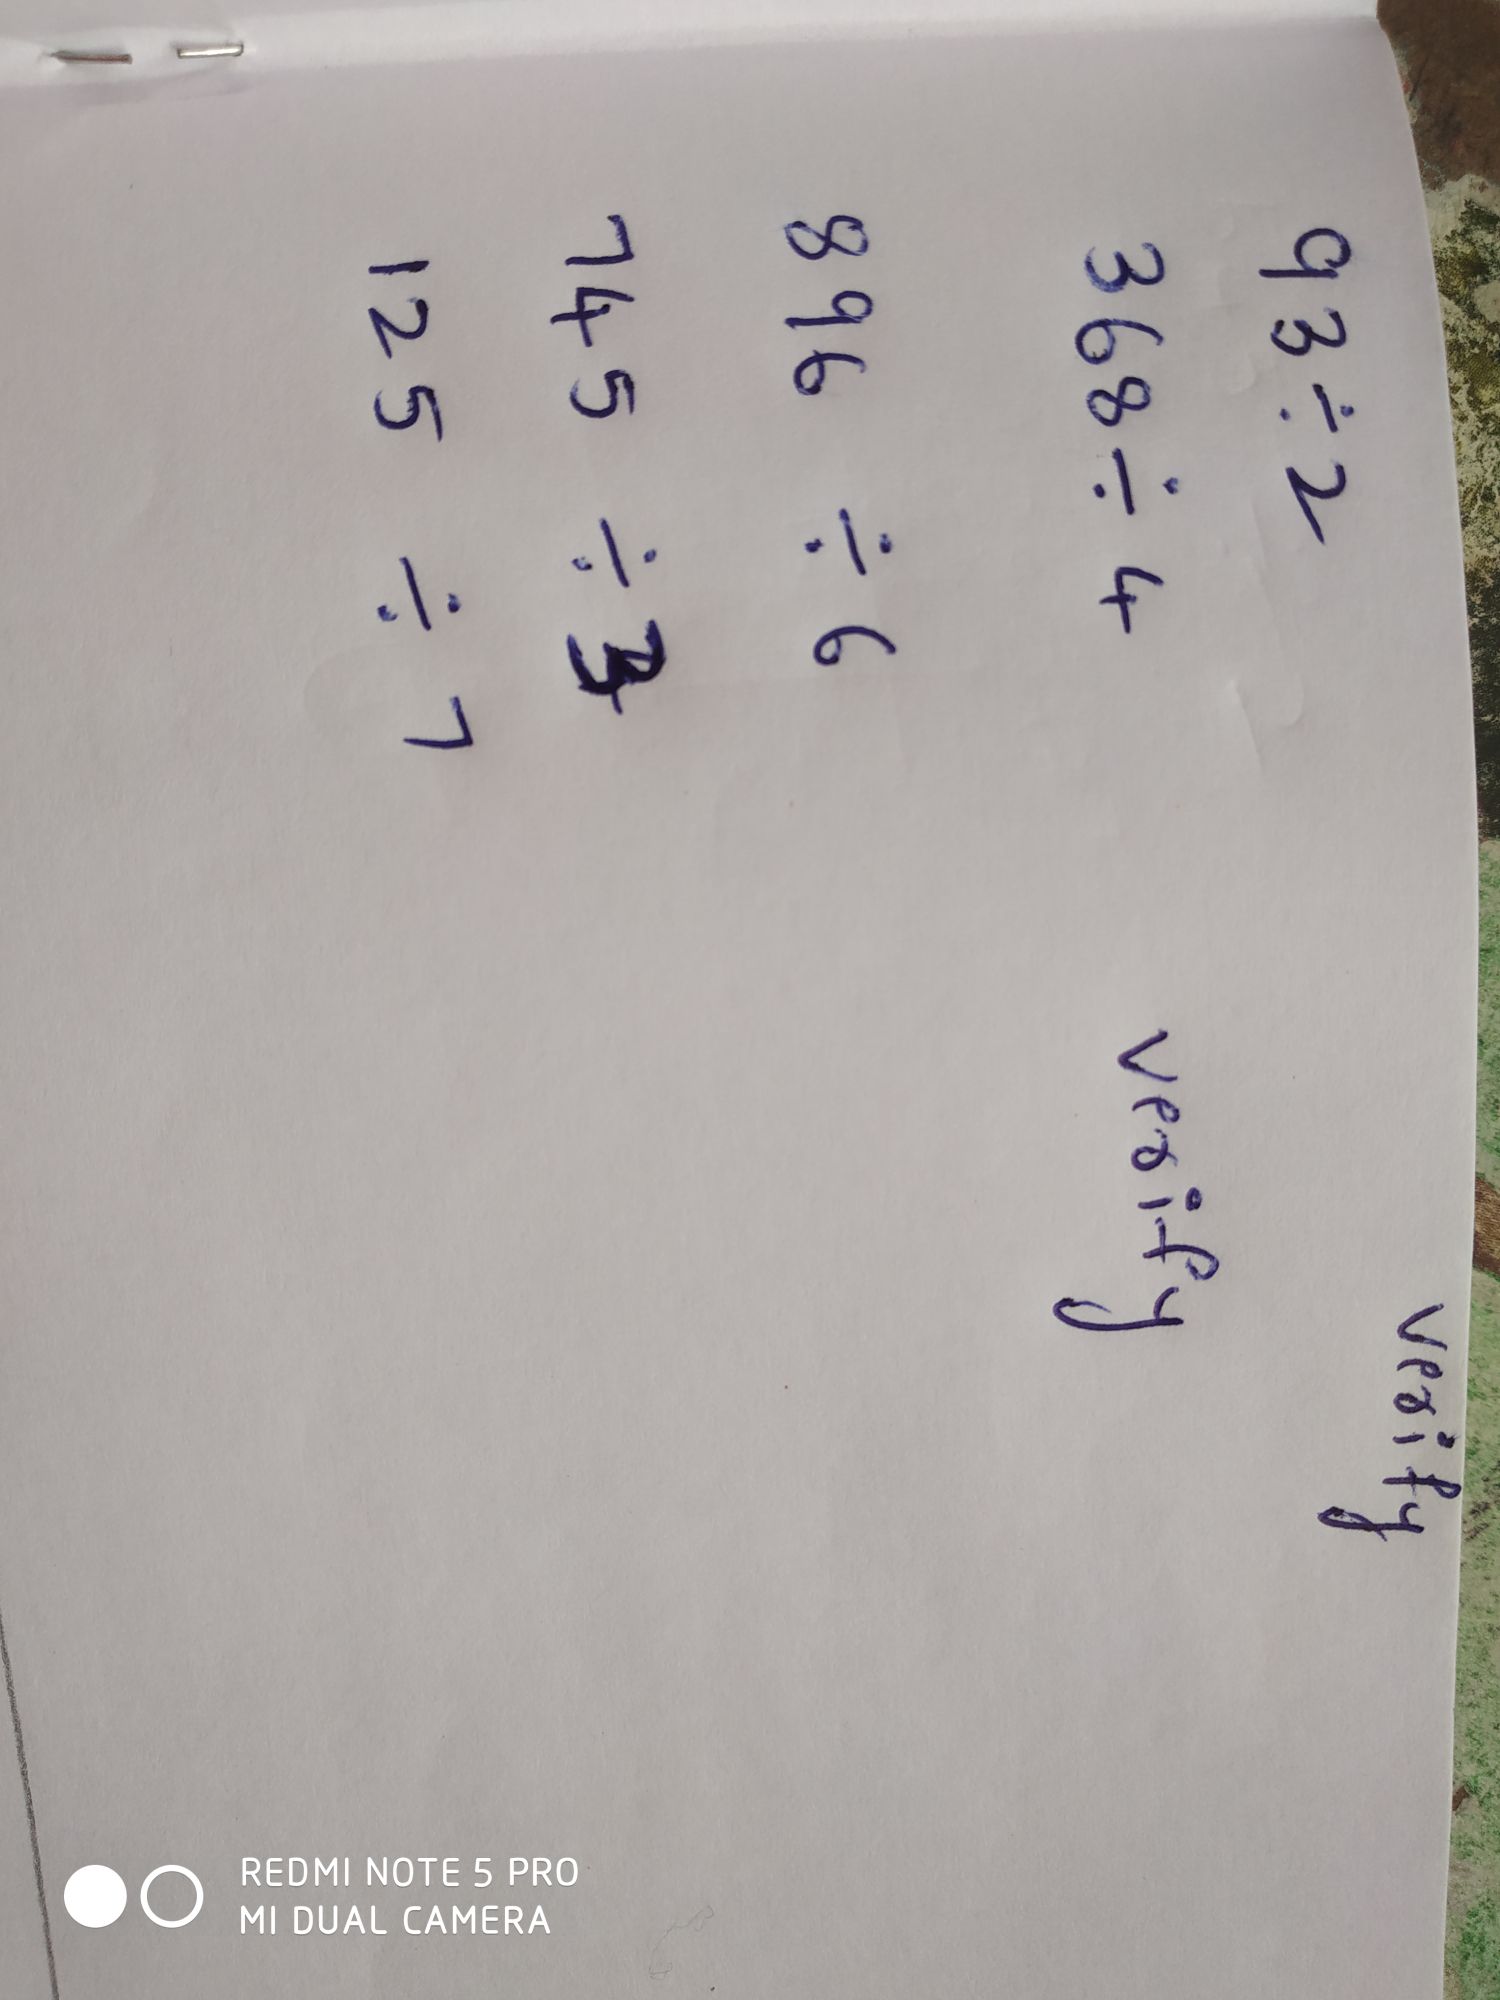 verify
93 ÷ 2
368 ÷ 4 verify
896 ÷ 6
745 ÷ 3
125 ÷ 7
REDMI NOTE 5 PRO
MI DUAL CAMERA